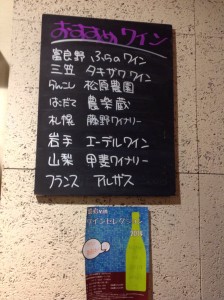 おすすめワイン
富良野 ふらのワイン
三笠 タキザワワイン
らんこし 松原農園
はこだて 農楽蔵
札幌 藤野ワイナリー
岩手 エーデルワイン
山梨 甲斐ワイナリー
フランス アルガス
ワインセレクション